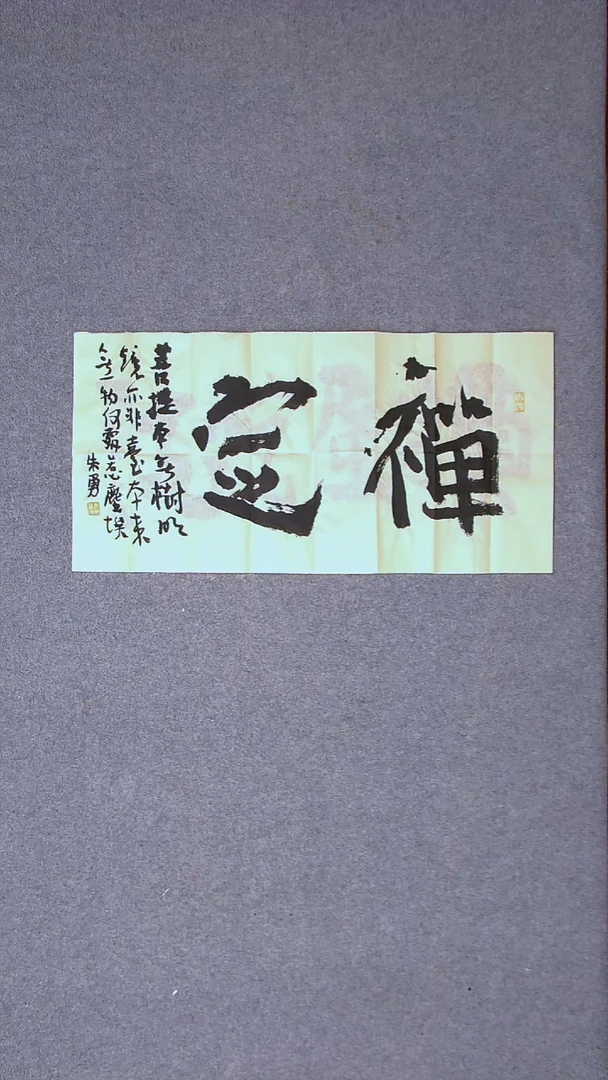 禪定
菩提本無樹明
鏡亦非臺本来
無一物何處惹塵埃
朱勇